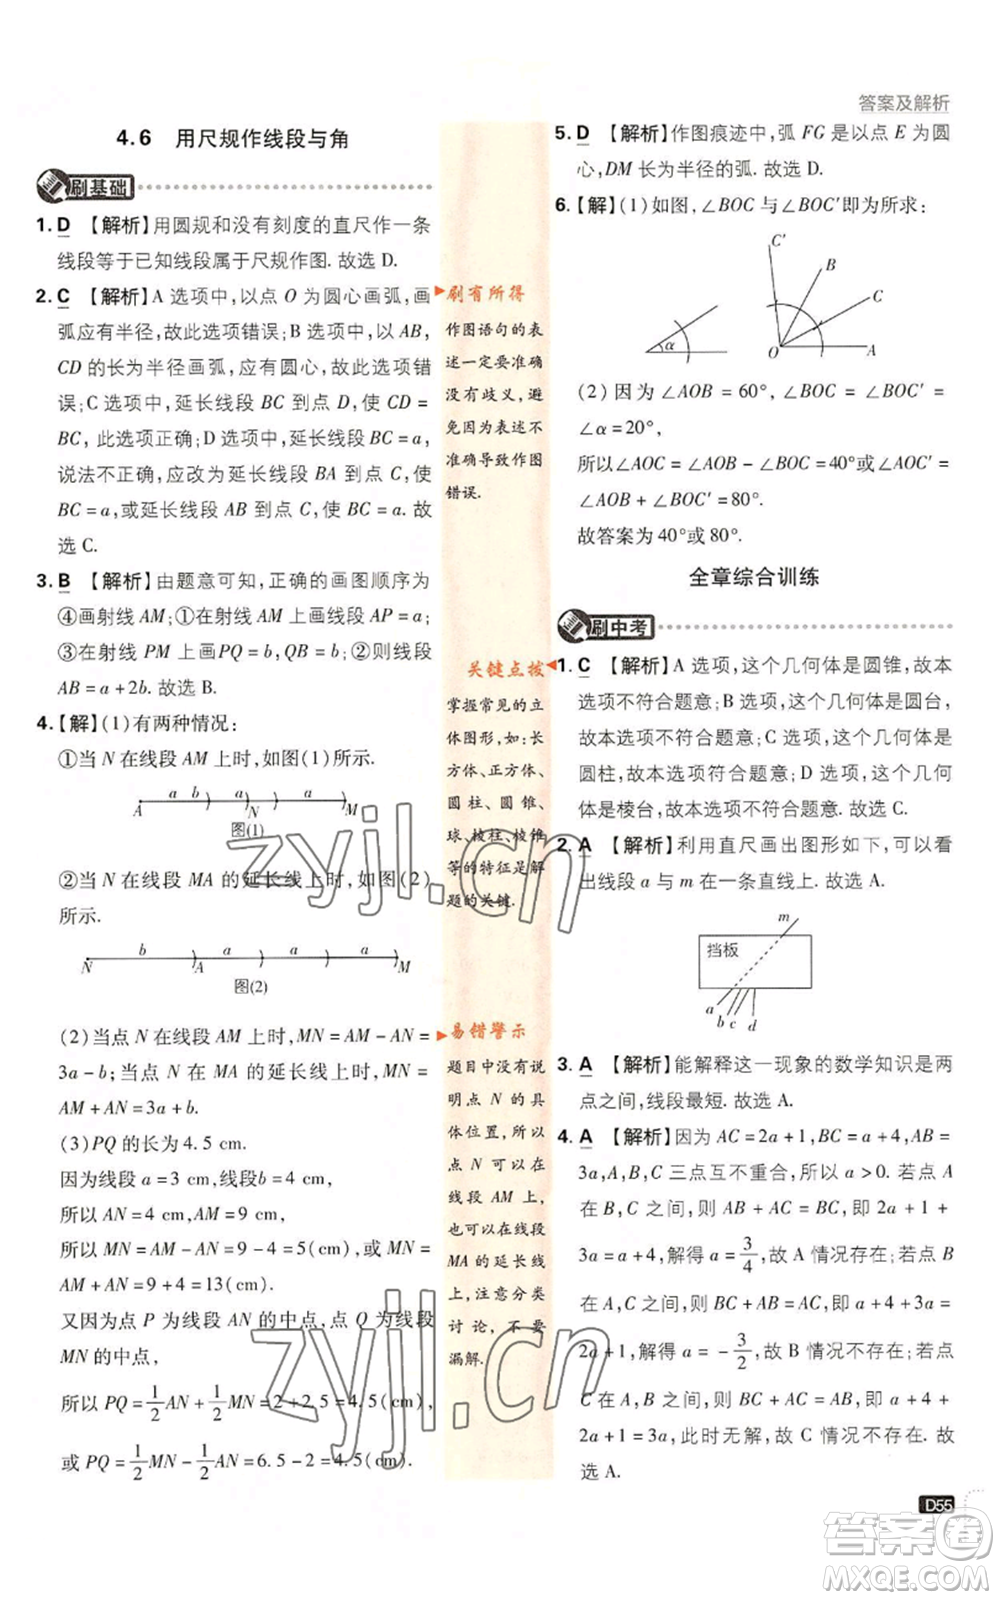 答案及解析
4.6 用尺规作线段与角
刷基础
1. D 【解析】用圆规和没有刻度的直尺作一条
线段等于已知线段属于尺规作图. 故选 D.
2. C 【解析】A 选项中,以点 O 为圆心画弧,画
弧应有半径,故此选项错误;B 选项中,以 AB,
CD 的长为半径画弧,应有圆心,故此选项错
误;C 选项中,延长线段 BC 到点 D,使 CD =
BC, 此选项正确;D 选项中,延长线段 BC = a,
说法不正确,应改为延长线段 BA 到点 C,使
BC = a,或延长线段 AB 到点 C,使 BC = a. 故
选 C.
3. B 【解析】由题意可知,正确的画图顺序为
④画射线 AM;①在射线 AM 上画线段 AP = a;
③在射线 PM 上画 PQ = b,QB = b;②则线段
AB = a + 2b. 故选 B.
4.【解】(1)有两种情况:
①当 N 在线段 AM 上时,如图(1)所示.
a b a a
A N M
图(1)
②当 N 在线段 MA 的延长线上时,如图(2)
所示.
b a a a
N A M
图(2)
(2)当点 N 在线段 AM 上时,MN = AM - AN =
3a - b;当点 N 在 MA 的延长线上时,MN =
AM + AN = 3a + b.
(3)PQ 的长为 4.5 cm.
因为线段 a = 3 cm,线段b = 4 cm,
所以 AN = 4 cm,AM = 9 cm,
所以 MN = AM - AN = 9 - 4 = 5(cm),或 MN =
AM + AN = 9 + 4 = 13(cm).
又因为点 P 为线段 AN 的中点,点 Q 为线段
MN 的中点,
所以 PQ = 1/2 AN + 1/2 MN = 2 + 2.5 = 4.5(cm)
或 PQ = 1/2 MN - 1/2 AN = 6.5 - 2 = 4.5(cm).
刷有所得
作图语句的表
述一定要准确
没有歧义,避
免因为表述不
准确导致作图
错误.
关键点拨
掌握常见的立
体图形,如:长
方体、正方体、
圆柱、圆锥、
球、棱柱、棱锥
等的特征是解
题的关键.
易错警示
题目中没有说
明点 N 的具
体位置,所以
点 N 可以在
线段 AM 上,
也可以在线段
MA 的延长线
上,注意分类
讨论,不要
漏解.
5. D 【解析】作图痕迹中,弧 FG 是以点 E 为圆
心,DM 长为半径的弧. 故选 D.
6.【解】(1)如图,∠BOC 与∠BOC′即为所求:
C′
B
C
α
O A
(2) 因为 ∠AOB = 60°, ∠BOC = ∠BOC′ =
∠α = 20°,
所以∠AOC = ∠AOB - ∠BOC = 40°或∠AOC =
∠AOB + ∠BOC′ = 80°.
故答案为 40°或 80°.
全章综合训练
刷中考
1. C 【解析】A 选项,这个几何体是圆锥,故本
选项不符合题意;B 选项,这个几何体是圆台,
故本选项不符合题意;C 选项,这个几何体是
圆柱,故本选项符合题意;D 选项,这个几何
体是棱台,故本选项不符合题意. 故选 C.
2. A 【解析】利用直尺画出图形如下,可以看
出线段 a 与 m 在一条直线上. 故选 A.
m
挡板
a b c d
3. A 【解析】能解释这一现象的数学知识是两
点之间,线段最短. 故选 A.
4. A 【解析】因为 AC = 2a + 1,BC = a + 4,AB =
3a,A,B,C 三点互不重合,所以 a > 0. 若点 A
在 B,C 之间,则 AB + AC = BC,即 2a + 1 +
3a = a + 4,解得 a = 3/4,故 A 情况存在;若点 B
在 A,C 之间,则 BC + AB = AC,即 a + 4 + 3a =
2a + 1,解得 a = - 3/2,故 B 情况不存在;若点
C 在 A,B 之间,则 BC + AC = AB,即 a + 4 +
2a + 1 = 3a,此时无解,故 C 情况不存在. 故
选 A.
D55
zyjl.cn
zyjl.cn
答案卷
MXQE.COM